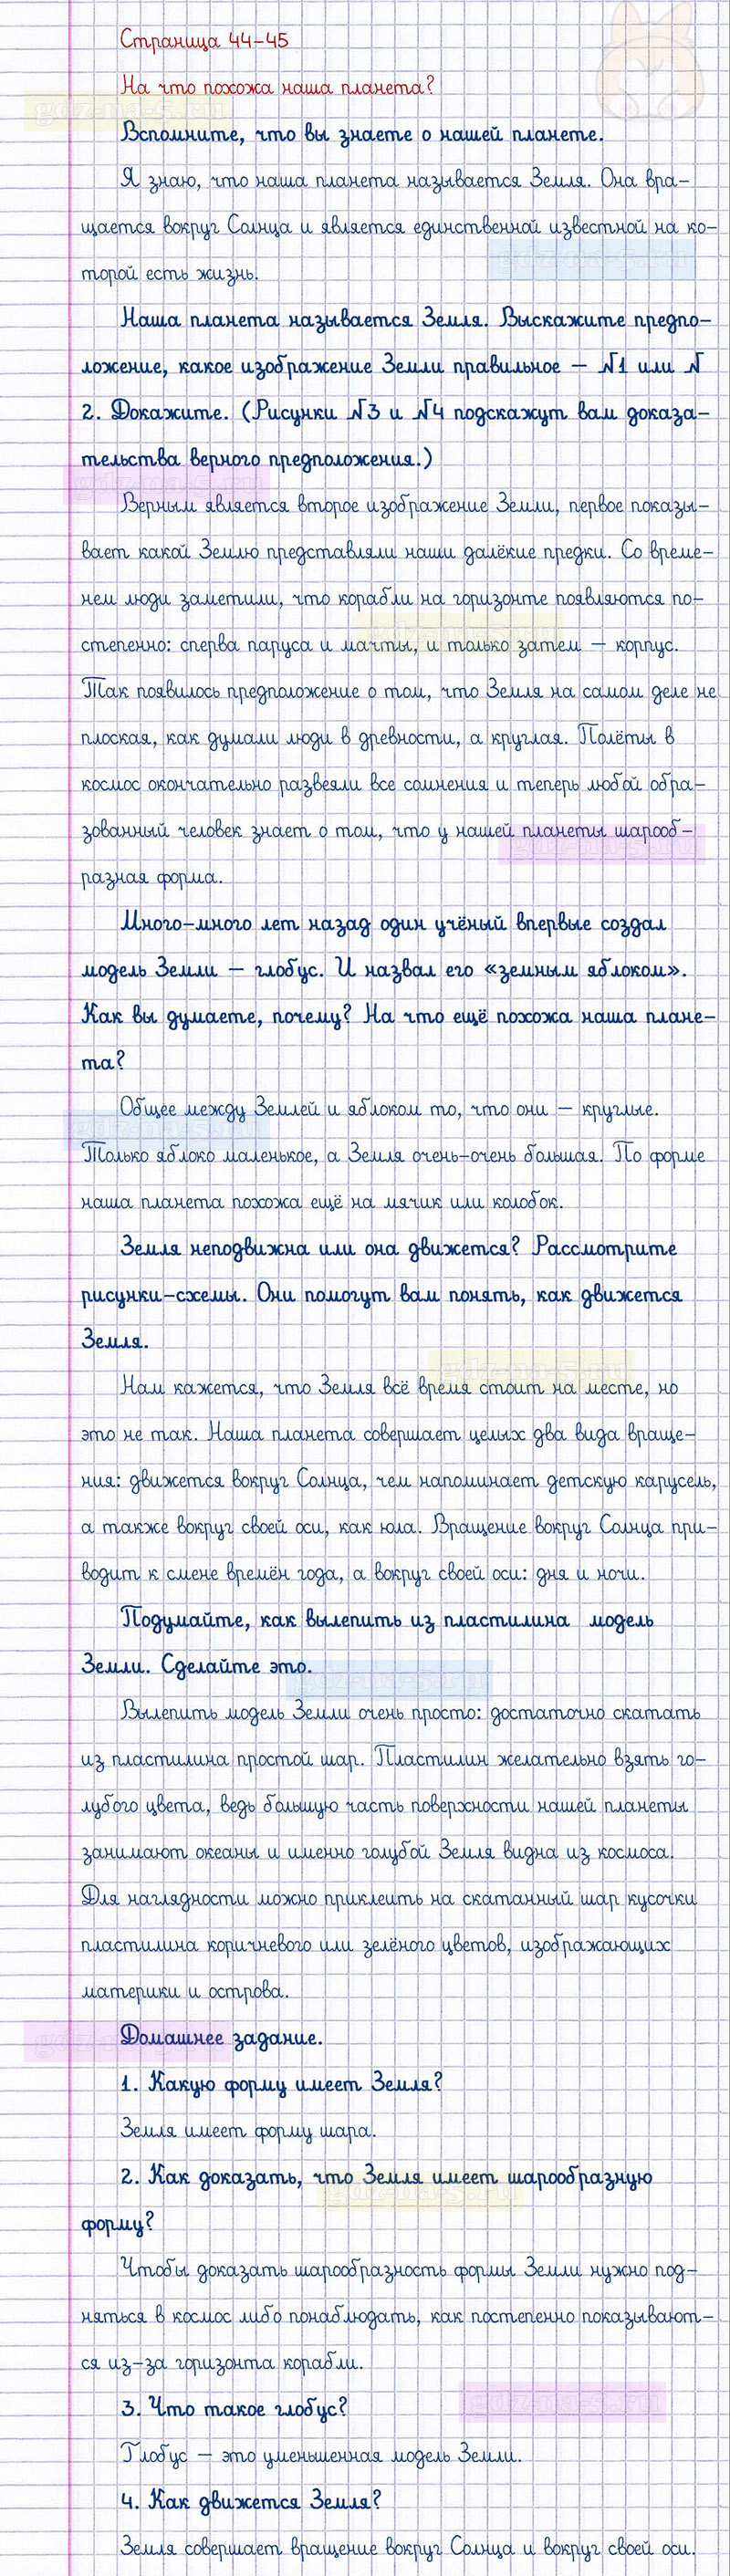 Страница 44-45
На что похожа наша планета?
Вспомните, что вы знаете о нашей планете.
Я знаю, что наша планета называется Земля. Она вра-
щается вокруг Солнца и является единственной известной на ко-
торой есть жизнь.
Наша планета называется Земля. Выскажите предпо-
ложение, какое изображение Земли правильное – №1 или №
2. Докажите. (Рисунки №3 и №4 подскажут вам доказа-
тельства верного предположения.)
Верным является второе изображение Земли, первое показы-
вает какой Землю представляли наши далёкие предки. Со време-
нем люди заметили, что корабли на горизонте появляются по-
степенно: сперва паруса и мачты, и только затем – корпус.
Так появилось предположение о том, что Земля на самом деле не
плоская, как думали люди в древности, а круглая. Полёты в
космос окончательно развеяли все сомнения и теперь любой обра-
зованный человек знает о том, что у нашей планеты шарооб-
разная форма.
Много-много лет назад один учёный впервые создал
модель Земли – глобус. И назвал его «земным яблоком».
Как вы думаете, почему? На что ещё похожа наша плане-
та?
Общее между Землей и яблоком то, что они – круглые.
Только яблоко маленькое, а Земля очень-очень большая. По форме
наша планета похожа ещё на мячик или колобок.
Земля неподвижна или она движется? Рассмотрите
рисунки-схемы. Они помогут вам понять, как движется
Земля.
Нам кажется, что Земля всё время стоит на месте, но
это не так. Наша планета совершает целых два вида враще-
ния: движется вокруг Солнца, чем напоминает детскую карусель,
а также вокруг своей оси, как юла. Вращение вокруг Солнца при-
водит к смене времён года, а вокруг своей оси: дня и ночи.
Подумайте, как вылепить из пластилина модель
Земли. Сделайте это.
Вылепить модель Земли очень просто: достаточно скатать
из пластилина простой шар. Пластилин желательно взять го-
лубого цвета, ведь большую часть поверхности нашей планеты
занимают океаны и именно голубой Земля видна из космоса.
Для наглядности можно приклеить на скатанный шар кусочки
пластилина коричневого или зелёного цветов, изображающих
материки и острова.
Домашнее задание.
1. Какую форму имеет Земля?
Земля имеет форму шара.
2. Как доказать, что Земля имеет шарообразную
форму?
Чтобы доказать шарообразность формы Земли нужно под-
няться в космос либо понаблюдать, как постепенно показывают-
ся из-за горизонта корабли.
3. Что такое глобус?
Глобус – это уменьшенная модель Земли.
4. Как движется Земля?
Земля совершает вращение вокруг Солнца и вокруг своей оси.